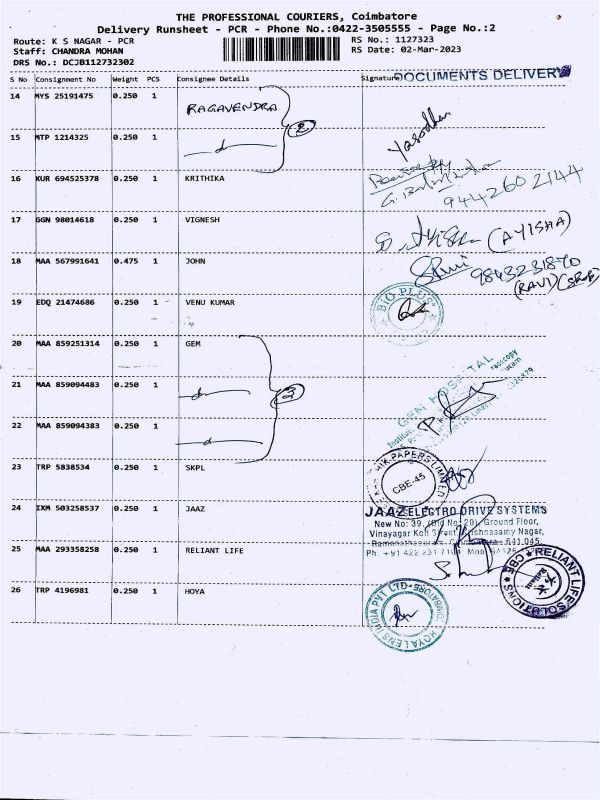 THE PROFESSIONAL COURIERS, Coimbatore
Delivery Runsheet - PCR - Phone No.:0422-3505555 - Page No.:2
Route: K S NAGAR - PCR
RS No.: 1127323
Staff: CHANDRA MOHAN
RS Date: 02-Mar-2023
DRS No.: DCJB112732302
S No Consignment No Weight PCS Consignee Details Signature DOCUMENTS DELIVERY
14 MYS 25191475 0.250 1 RAGAVENDRA
2
15 MTP 1214325 0.250 1 Yasodha
16 KUR 694525378 0.250 1 KRITHIKA
9442602144
17 GGN 98014618 0.250 1 VIGNESH (AYISHA)
18 MAA 567991641 0.475 1 JOHN 9843231870
(RAVI)
19 EDQ 21474686 0.250 1 VENU KUMAR BIO PLUS
20 MAA 859251314 0.250 1 GEM
GEM HOSPITAL
21 MAA 859094483 0.250 1
3
22 MAA 859094383 0.250 1
23 TRP 5838534 0.250 1 SKPL
PAPERS LIMITED
CBE-45
24 IXM 503258537 0.250 1 JAAZ
JAAZ ELECTRO DRIVE SYSTEMS
New No: 39, (Old No: 20), Ground Floor,
Vinayagar Koil Street, Krishnasamy Nagar,
641 045
Ph: +91 422 231
25 MAA 293358258 0.250 1 RELIANT LIFE
RELIANT LIFE SOLUTIONS
CBE
26 TRP 4196981 0.250 1 HOYA
HOYA LENS INDIA PVT LTD
COIMBATORE